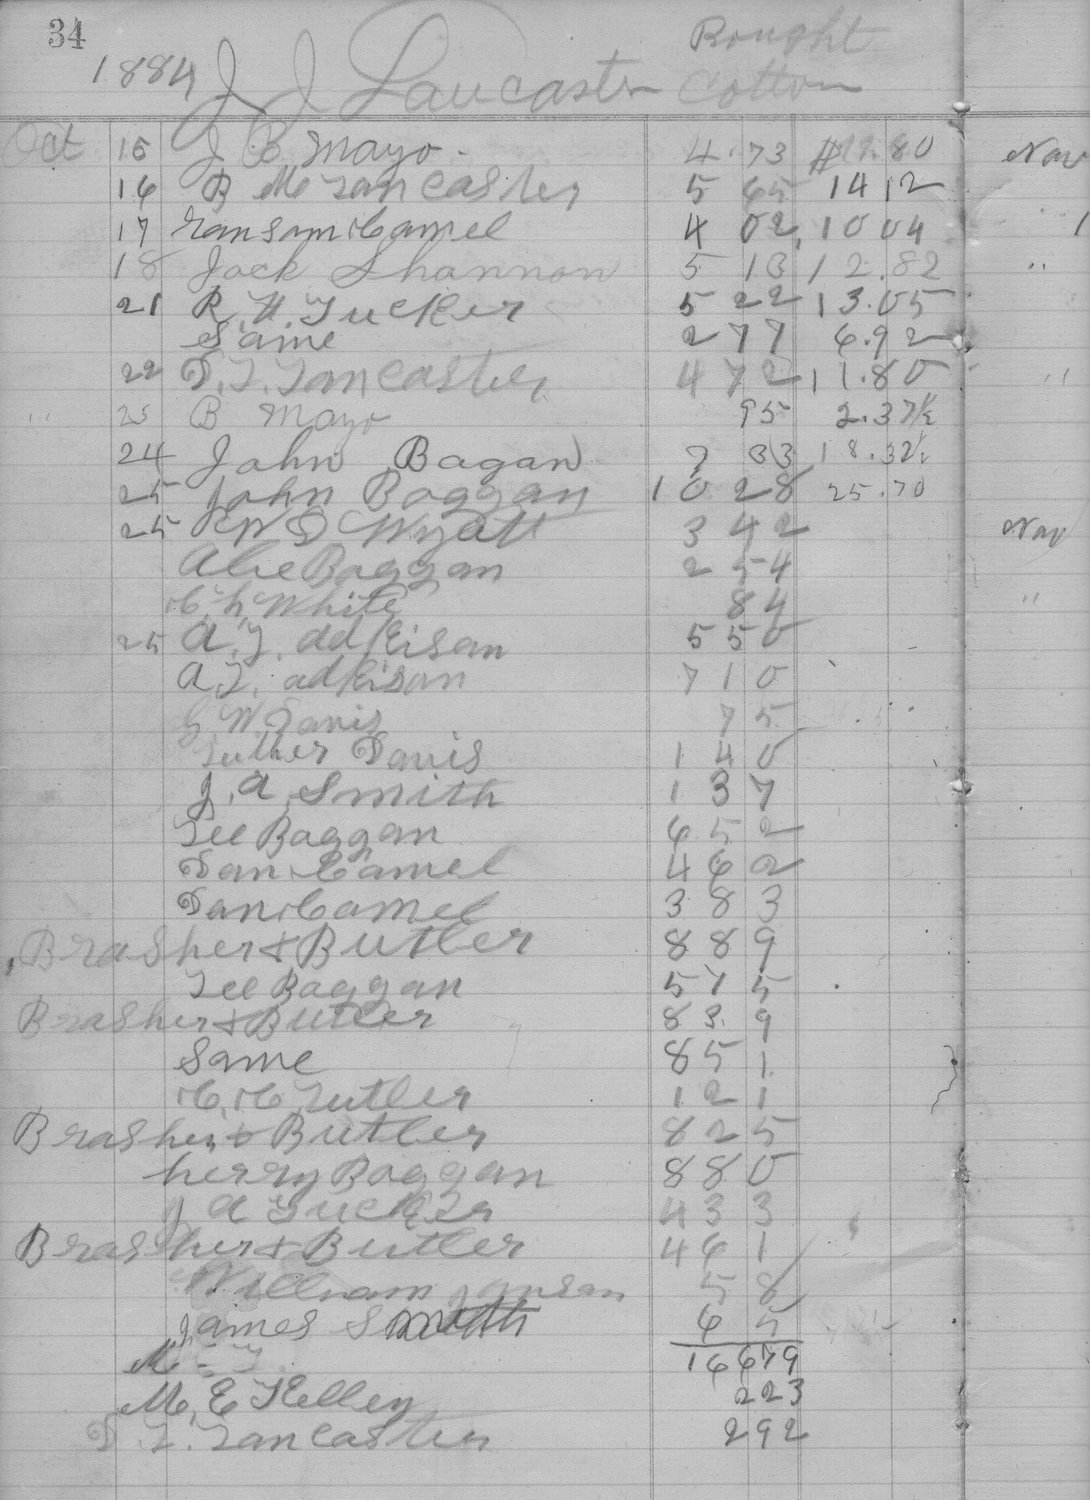 34
Bought
1884 J J Lancaster Cotton
Oct 15 J B Mayo 4 73 $11.80 Nov
16 B M Lancaster 5 65 14 12
17 Ransom Camel 4 02 10 04 " 1
18 Jack Shannon 5 13 12.82 "
21 R. H. Tucker 5 22 13.05
Same 2 77 6.92
22 D. T. Lancaster 4 72 11.80 "
" 25 B Mayo 95 2.37½
24 John Bagan 7 33 18.32½
25 John Baggan 10 28 25.70
25 W D Wyatt 3 42 Nov
Abe Baggan 2 54
C. h. White 84 "
25 A. J. adkisan 5 50
A. J. adkisan 7 10
G W Davis 75
Luther Davis 1 40
J. A. Smith 1 37
Lee Baggan 6 52
Dan Camel 4 62
Dan Camel 3 83
Brasher & Butler 8 89
Lee Baggan 5 75
Brasher & Butler 8 39
Same 8 51
C. C. Butler 1 21
Brasher & Butler 8 25
herry Baggan 8 80
J A Tucker 4 33
Brasher & Butler 4 61
William 58
James Smith 65
M 16679
M. E Kelley 223
D. T. Lancaster 292